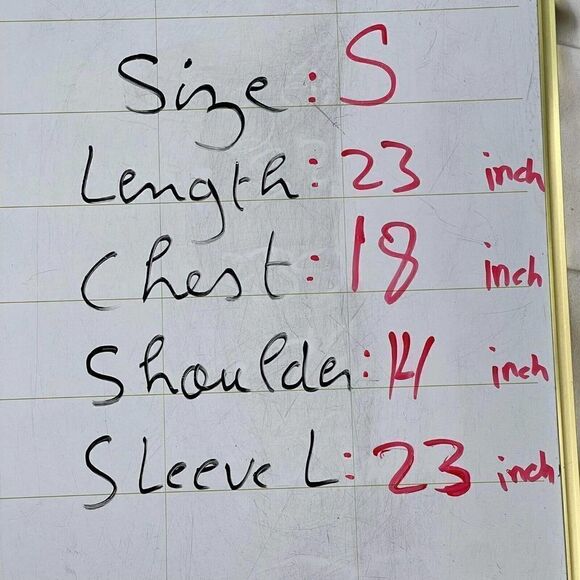 Size: S
Length: 23 inch
Chest: 18 inch
Shoulder: 14 inch
Sleeve L: 23 inch